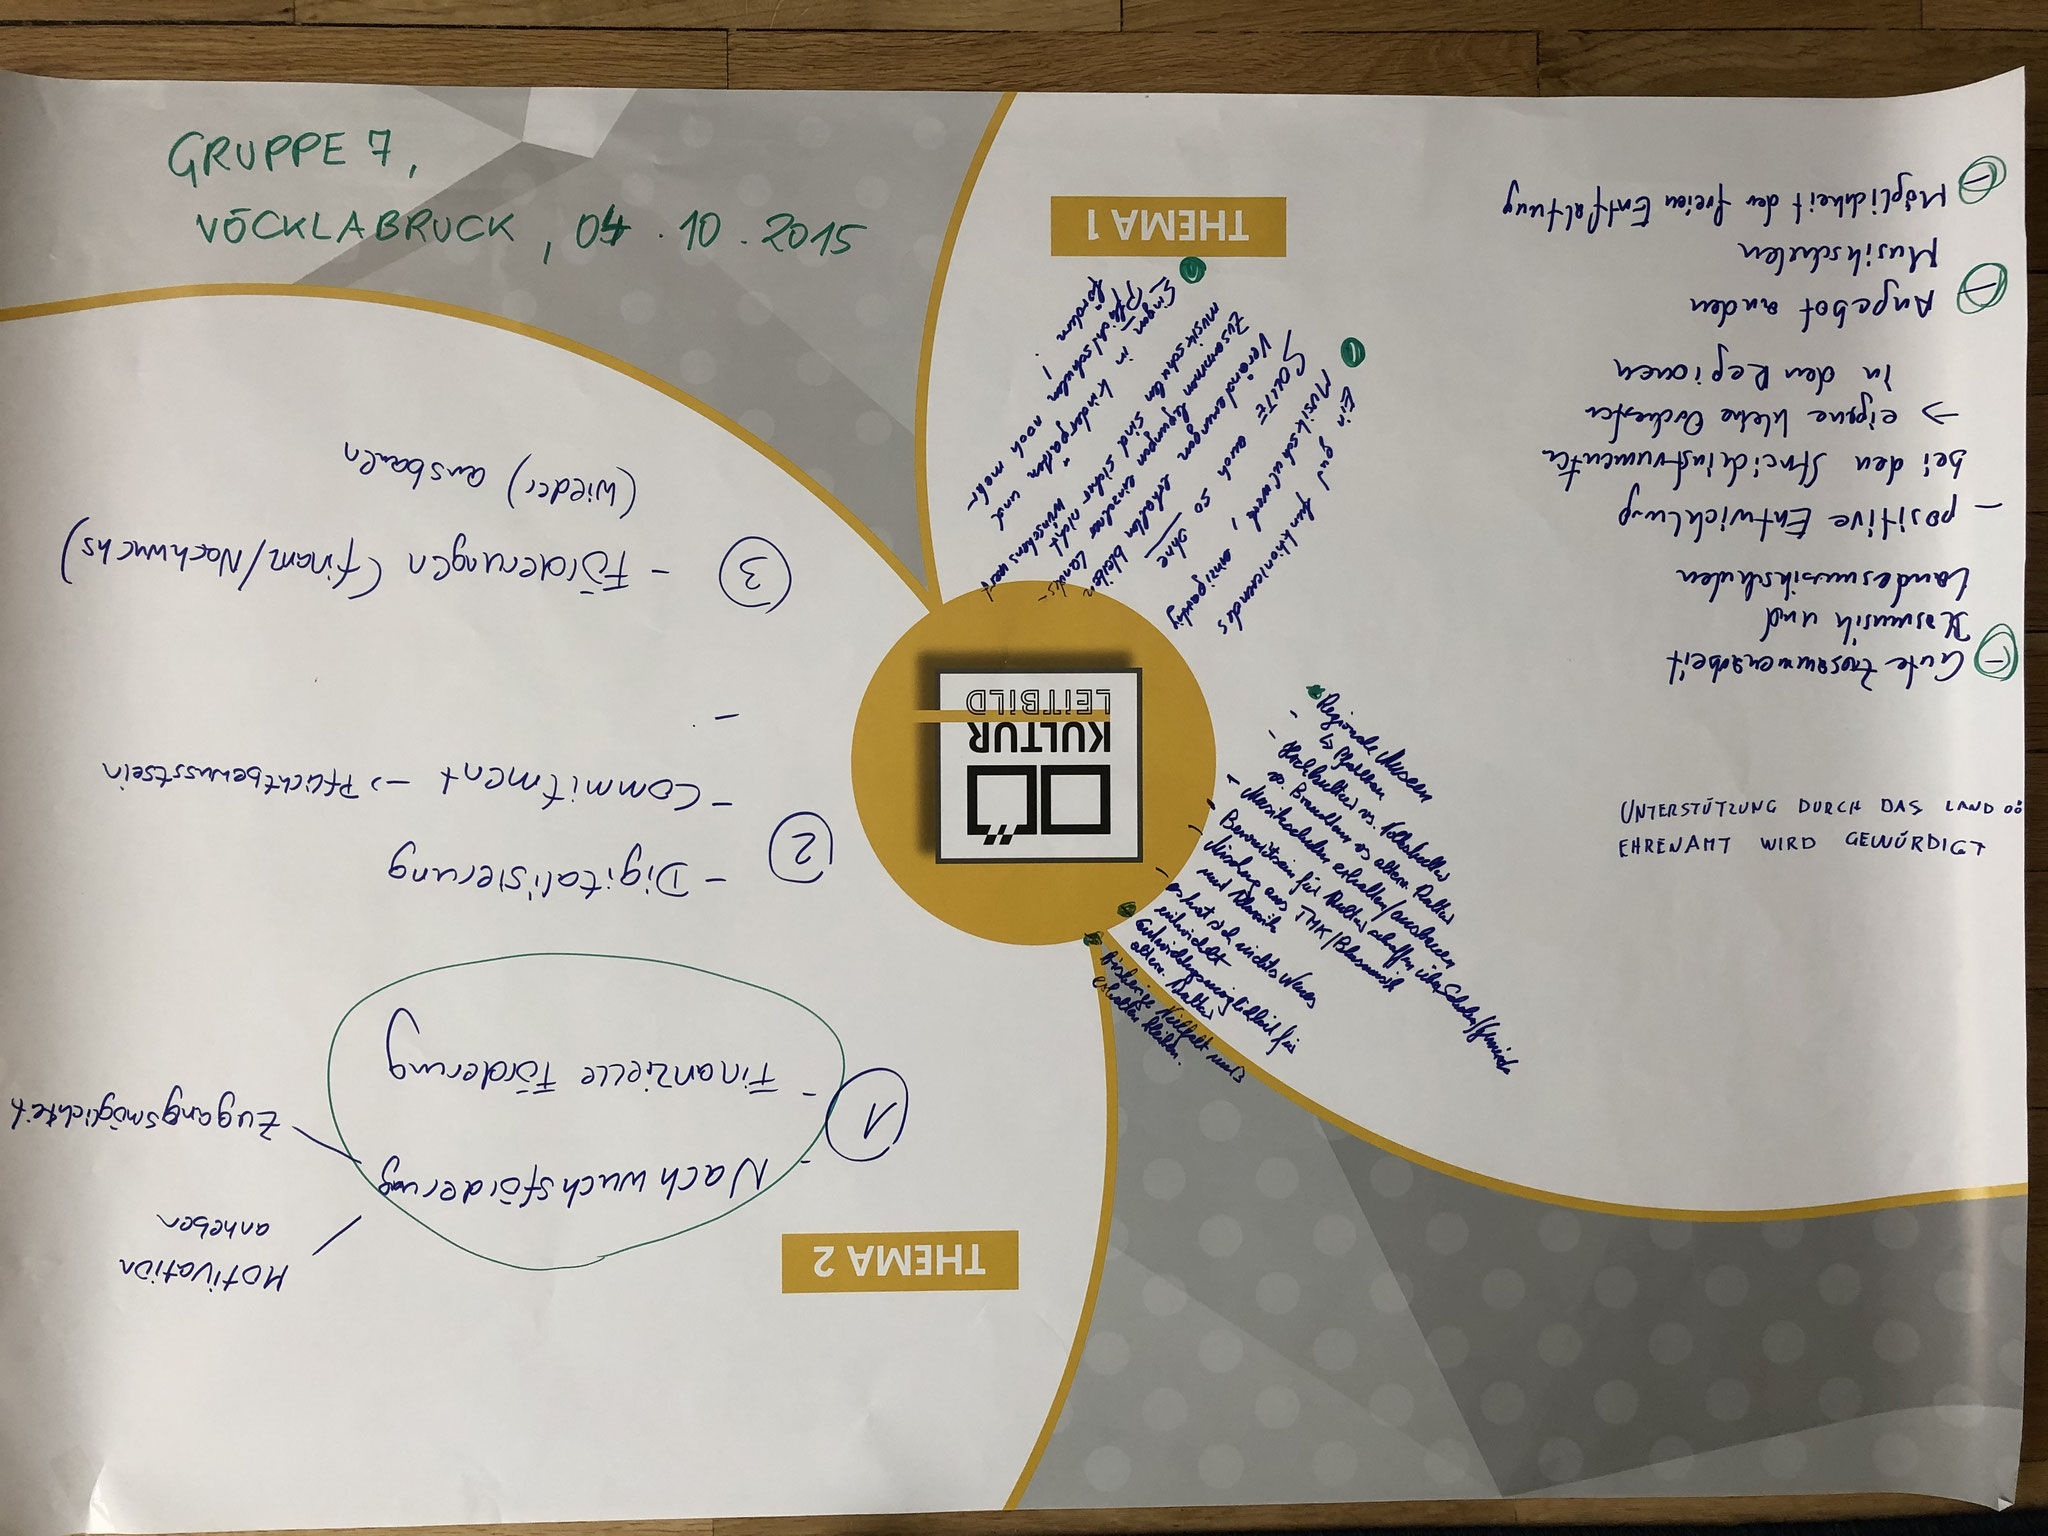 GRUPPE 7,
VÖCKLABRUCK, 04.10.2015
THEMA 1
Gute Zusammenarbeit
Blasmusik und
Landesmusikschulen
- positive Entwicklung
bei den Streichinstrumenten
→ eigene kleine Orchester
in den Regionen
Angebot an den
Musikschulen
Möglichkeit der freien Entfaltung
UNTERSTÜTZUNG DURCH DAS LAND OÖ
EHRENAMT WIRD GEWÜRDIGT
Ein gut funktionierendes
Musikschulwerk, einzigartig
SOLLTE auch so ohne
Veränderungen erhalten bleiben
Zusammenlegungen einzelner Landes-
musikschulen sind sicher nicht wünschenswert
Singen in Kindergärten und
Pflichtschulen noch mehr
fördern!
Regionale Museen
- Hochkultur vs. Volkskultur
vs. Brauchtum vs altern. Kultur
+ Musikschulen erhalten/ausbauen
- Bewusstsein für Kultur schaffen über Schulen/Gemeinde
- Mischung aus TMK/Blasmusik
und Klassik
- es hat sich nichts Neues
entwickelt
Entwicklungsmöglichkeit für
altern. Kultur
Bisherige Vielfalt muß
erhalten bleiben.
KULTUR
LEITBILD
OÖ
THEMA 2
1
- Nachwuchsförderung
Motivation
anheben
Zugangsmöglichkeit
- Finanzielle Förderung
2
- Digitalisierung
- Commitment → Pflichtbewusstsein
-
3
- Förderungen (Finanz/Nachwuchs)
(wieder) ausbauen